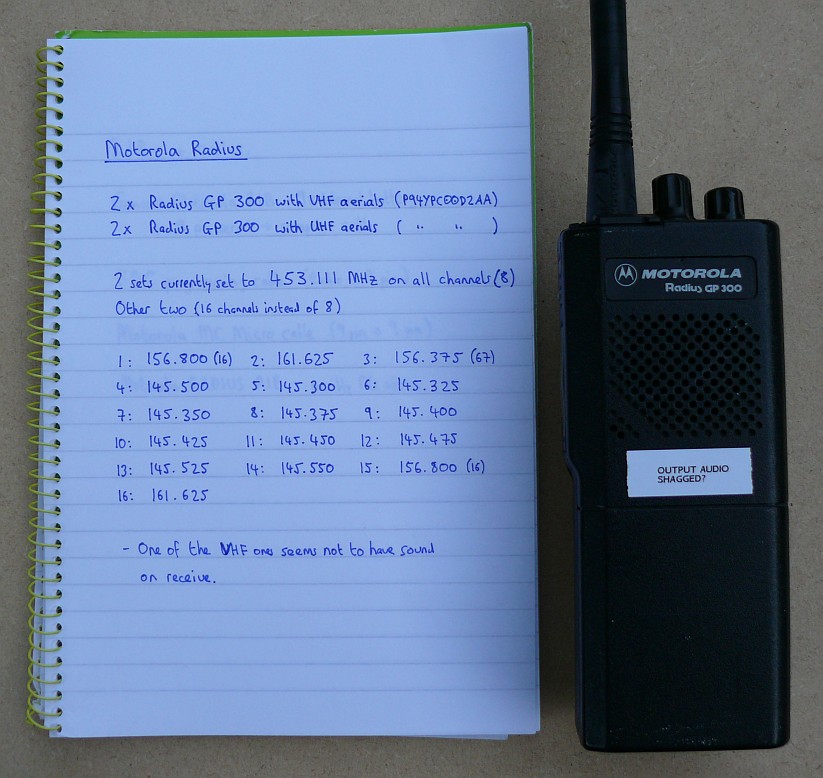 Motorola Radius
2x Radius GP 300 with VHF aerials (P94YPC00D2AA)
2x Radius GP 300 with UHF aerials ( " " )
2 sets currently set to 453.111 MHz on all channels (8)
Other two (16 channels instead of 8)
1: 156.800 (16) 2: 161.625 3: 156.375 (67)
4: 145.500 5: 145.300 6: 145.325
7: 145.350 8: 145.375 9: 145.400
10: 145.425 11: 145.450 12: 145.475
13: 145.525 14: 145.550 15: 156.800 (16)
16: 161.625
- One of the VHF ones seems not to have sound
on receive.
MOTOROLA
Radius GP 300
OUTPUT AUDIO
SHAGGED?